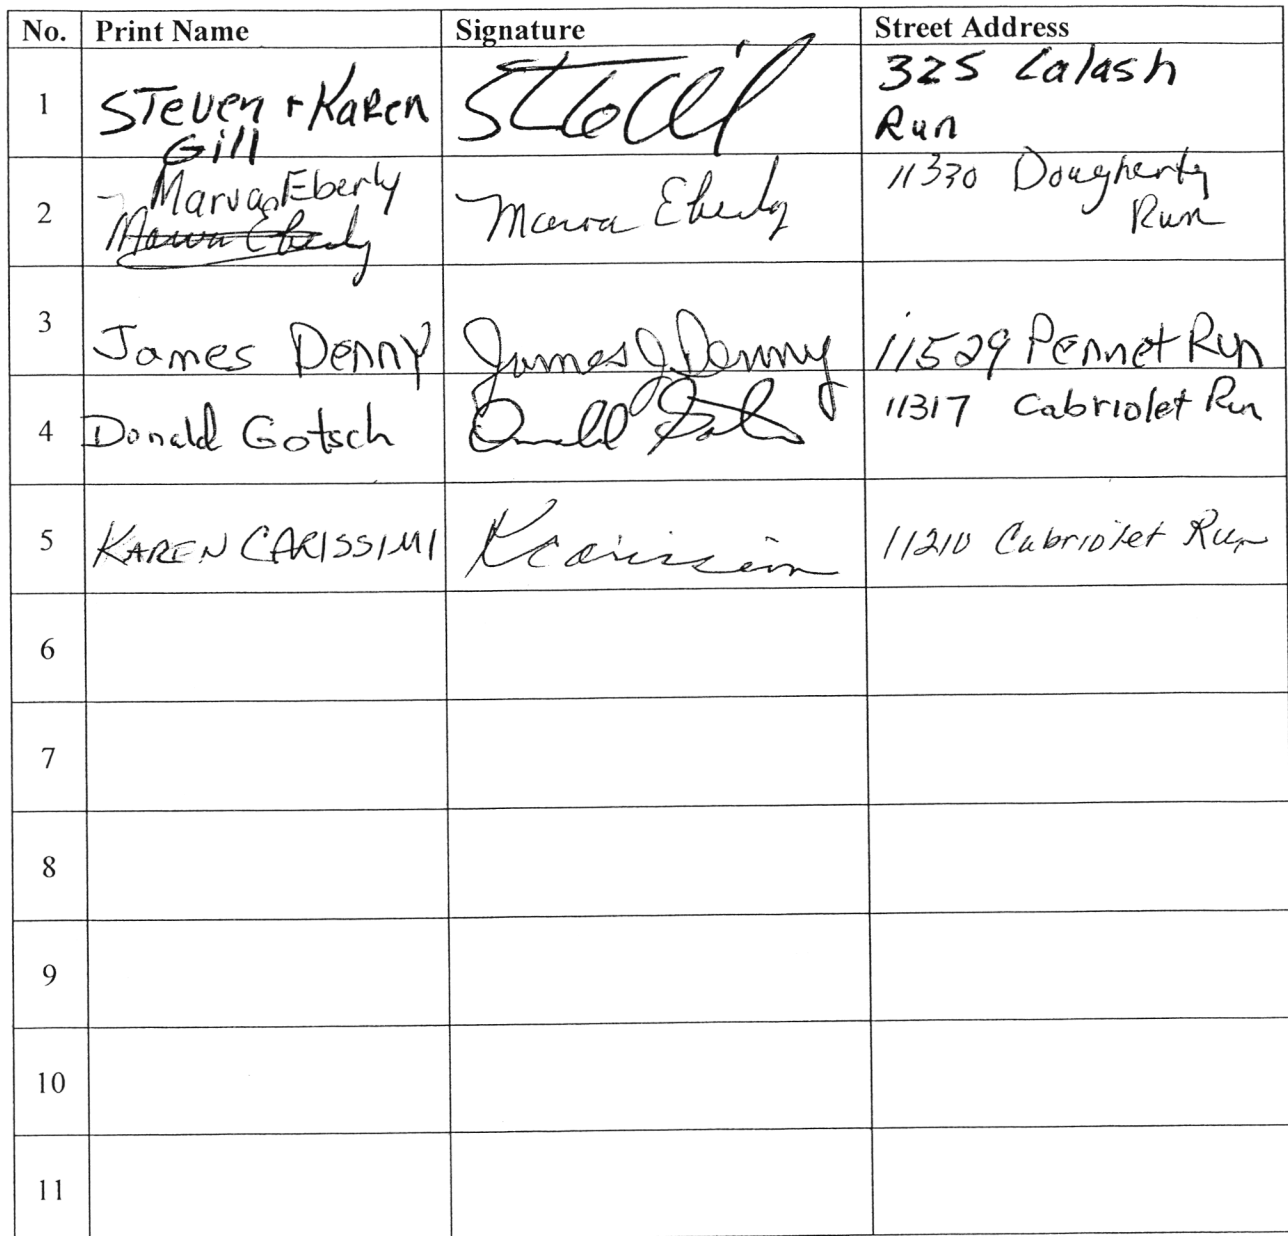 No. Print Name Signature Street Address
1 Steven + Karen Gill 325 Calash Run
2 Marva Eberly Marva Eberly Marva Eberly 11330 Dougherty Run
3 James Denny James J Denny 11529 Pennet Run
4 Donald Gotsch Donald 11317 Cabriolet Run
5 KAREN CARISSIMI KCarissimi 11210 Cabriolet Run
6
7
8
9
10
11